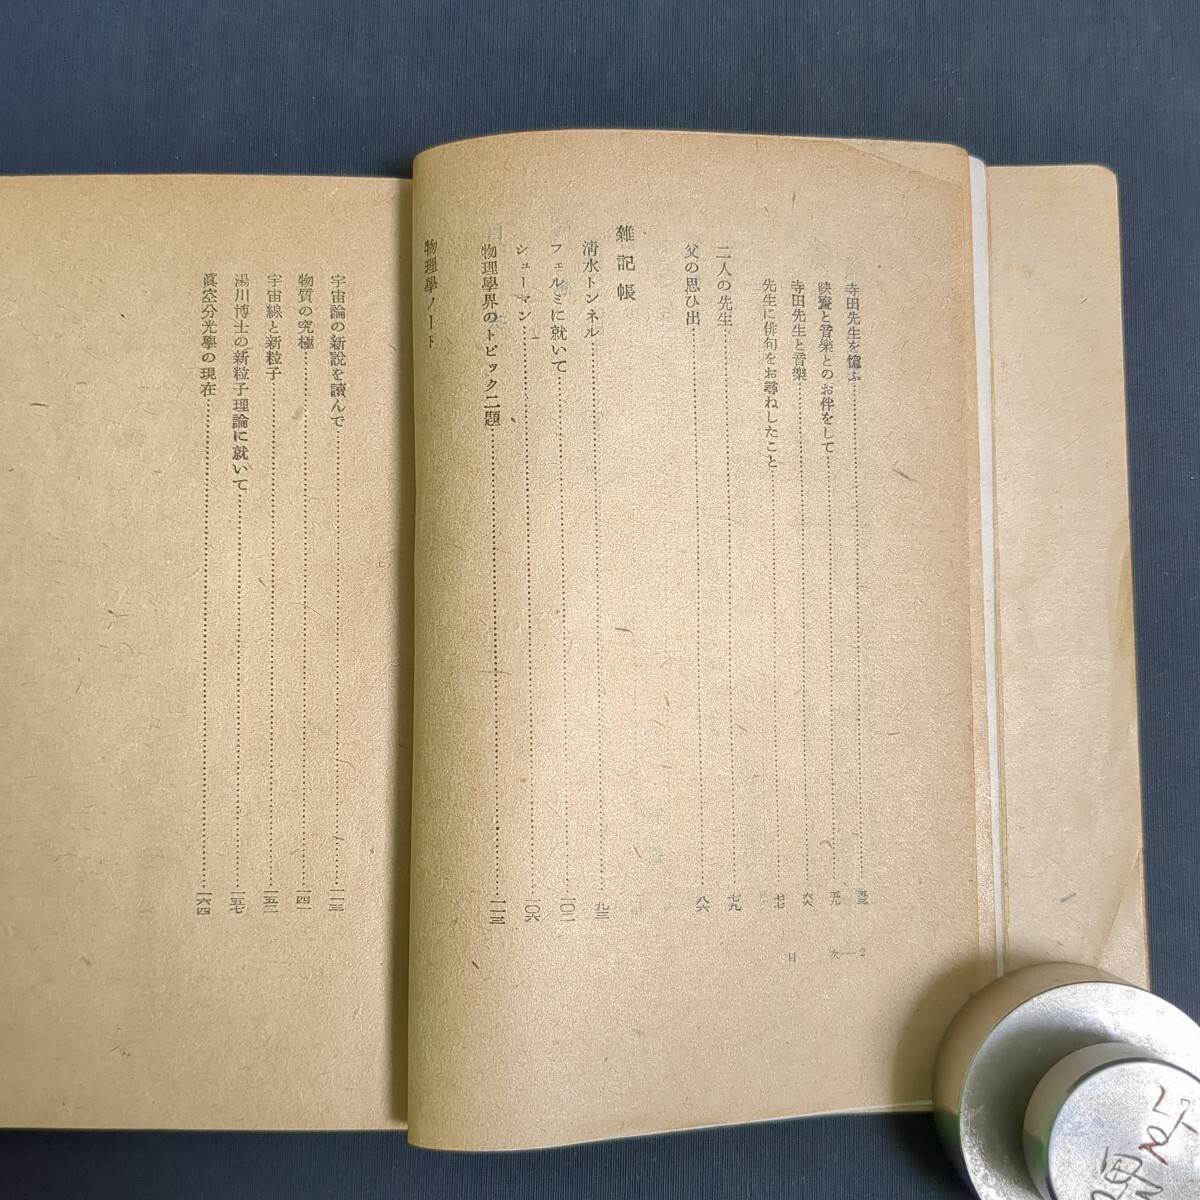 寺田先生を憶ふ……五三
映畫と音樂とのお伴をして……五九
寺田先生と音樂……六六
先生に俳句をお尋ねしたこと……七七
二人の先生……七九
父の思ひ出……八六
雜記帳
淸水トンネル……九三
フェルミに就いて……一〇二
シューマン……一〇六
物理學界のトピック二題……一一三
物理學ノート
目次―2
宇宙論の新説を讀んで……一二三
物質の究極……一四一
宇宙線と新粒子……一五二
湯川博士の新粒子理論に就いて……一五七
眞空分光學の現在……一六四